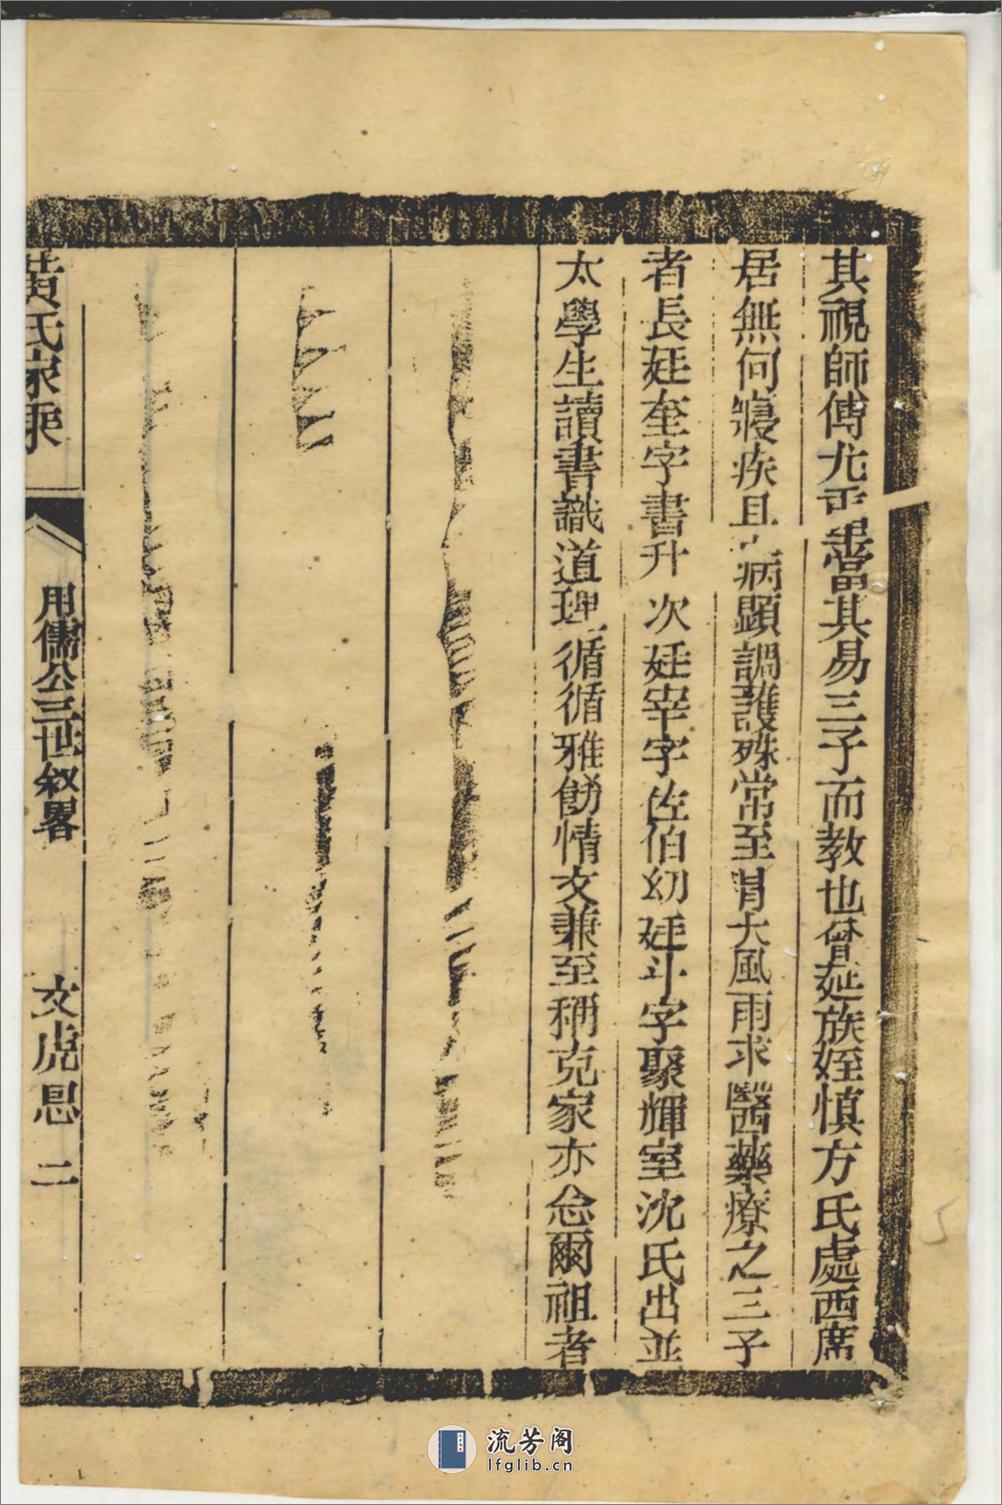 其視師傅尤重嘗其易三子而教也曾延族姪慎方氏處西席
居無何寢疾且病顯調護殊常至冐大風雨求醫藥療之三子
者長廷奎字書升次廷宰字佐伯幼廷斗字聚輝室沈氏出並
太學生讀書識道理循循雅飭情文兼至稱克家亦念爾祖者
黃氏家乘
用儒公三世叙畧
文虎㤙 二
流芳阁
lfglib.cn